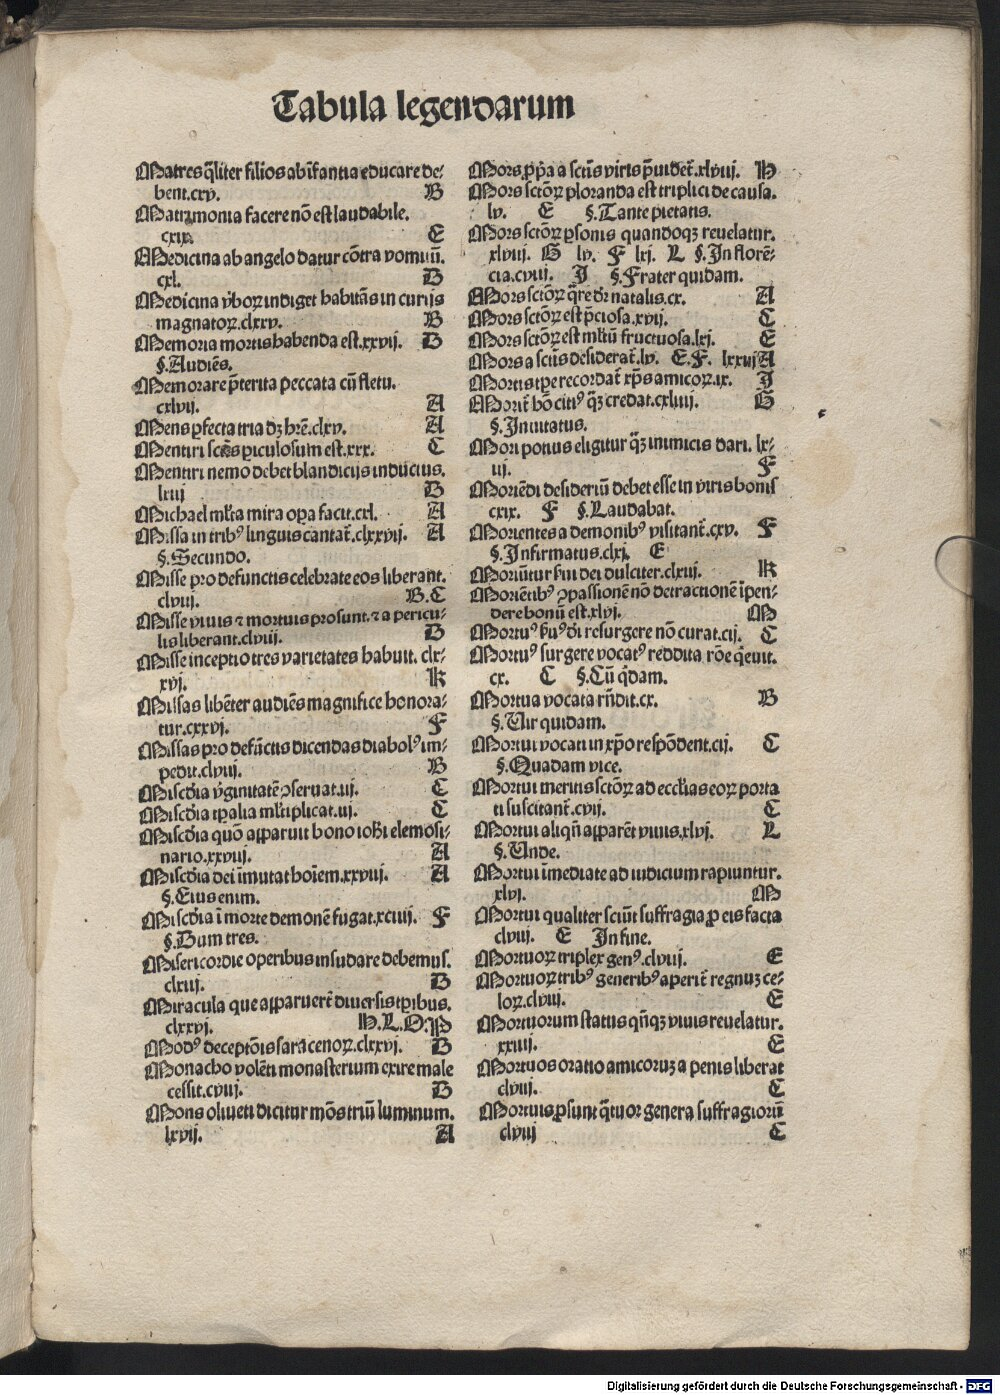 Tabula legendarum
Matres q̄liter filios ab īfantia educare de⸗
bent.cxv. B
Matrimonia facere nō est laudabile.
cxix. E
Medicina ab angelo datur cōtra vomitū.
cxl. B
Medicina v̾boꝝ indiget habitās in curijs
magnatoꝝ.clxxv. B
Memoria mortis habenda est.xxvij. B
§.Audiēs.
Memorare p̄terita peccata cū fletu.
cxlvij. A
Mens ꝑfecta tria dꝫ hr̄e.clxv. A
Mentiri scīēs ꝑiculosum est.xxx. C
Mentiri nemo debet blandicijs inductus.
lxiij B
Michael ml̄ta mira oꝑa facit.cxl. A
Missa in tribꝰ linguis cantat̄.clxxvij. A
§.Secundo.
Misse pro defunctis celebrate eos liberant.
clviij. B.C
Misse viuis ⁊ mortuis prosunt.⁊ a pericu⸗
lis liberant.clviij. B
Misse inceptio tres varietates habuit. clx⸗
xvj. K
Missas libēter audiēs magnifice honora⸗
tur.cxxvj. F
Missas pro defūctis dicendas diabolꝰ im⸗
pedit.clviij. B
Miscd̄ia v̾ginitatē ꝯseruat.iij. C
Miscd̄ia tꝑalia ml̄tiplicat.iij. C
Miscd̄ia quō apparuit bono ioh̄i elemosi⸗
nario.xxviij. A
Miscd̄ia dei īmutat hoīem.xxviij. A
§.Eius enim.
Miscd̄ia ī morte demonē fugat.xciij. F
§.Dum tres.
Misericordie operibus insudare debemus.
clxij. B
Miracula que apparuerūt diuersis tꝑibus.
clxxvj. H.L.O.P
Modꝰ deceptōis saracenoꝝ.clxxvj. B
Monacho volēti monasterium exire male
cessit.cviij. B
Mons oliueti dicitur mōs triū luminum.
lxvij. A
Mors ꝓpria a sctīs viris p̄uidet̄.xlviij. H
Mors sctōꝝ ploranda est triplici de causa.
lv. E §.Tante pietatis.
Mors sctōꝝ ꝑsonis quandoqꝫ reuelatur.
xlviij. G lv. F lxj. L §.In florē⸗
cia.cviij. I §.Frater quidam.
Mors sctōꝝ q̄re dr̄ natalis.cx. A
Mors sctōꝝ est p̄ciosa.xvij. C
Mors sctōꝝ est ml̄tū fructuosa.lxj. E
Mors a sctīs desiderat̄.lv. E.F. lxxvij A
Mortis tꝑe recordat̄ xp̄s amicoꝝ.ix. I
Morit̄ hō citiꝰ q̄ꝫ credat.cxliiij. G
§.Inuitatus.
Mori potius eligitur q̄ꝫ inimicis dari. lx⸗
iij. F
Moriēdi desideriū debet esse in viris bonis
cxix. F §.Laudabat.
Morientes a demonibꝰ visitant̄.cxv. F
§.Infirmatus.clxj. E
Moriūtur fui dei dulciter.clxij. K
Moriētibꝰ ꝯpassionē nō detractionē īpen⸗
dere bonū est.xlvj. M
Mortuꝰ fuꝰ di resurgere nō curat.cij. C
Mortuꝰ surgere vocatꝰ reddita rōe q̄euit.
cx. C §.Cū q̄dam.
Mortua vocata rn̄dit.cx. B
§.Uir quidam.
Mortui vocati in xp̄o respōdent.cij. C
§.Quadam vice.
Mortui meritis sctōꝝ ad ecclīas eoꝝ porta
ti suscitant̄.cvij. C
Mortui aliqn̄ apparēt viuis.xlvj. L
§.Unde.
Mortui īmediate ad iudicium rapiuntur.
xlvj. M
Mortui qualiter sciūt suffragia ꝓ eis facta
clviij. E In fine.
Mortuoꝝ triplex genꝰ.clviij. E
Mortuoꝝ tribꝰ generibꝰ aperit̄ regnuꝫ ce⸗
loꝝ.clviij. E
Mortuorum status qn̄qꝫ viuis reuelatur.
xxiiij. E
Mortuos oratio amicoruꝫ a penis liberat
clviij. C
Mortuis ꝓsunt q̄tuor genera suffragiorū
clviij C
Digitalisierung gefördert durch die Deutsche Forschungsgemeinschaft - DFG